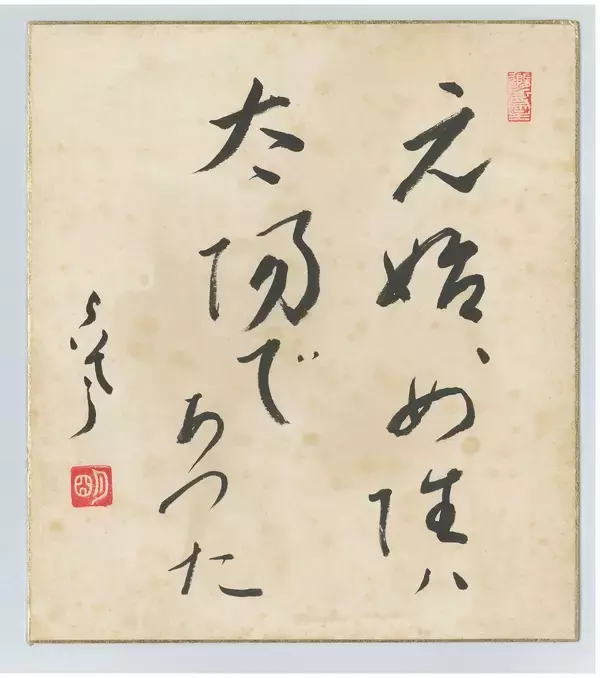 元始、女性ハ
太陽で
あつた
らいてう
明